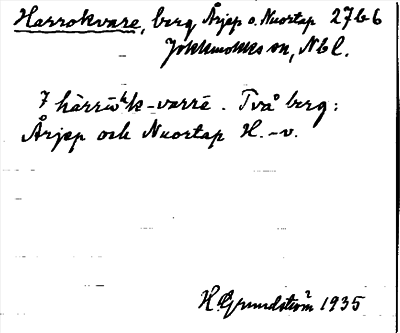 Harrokvare, berg Årjep o. Nuortap 27 b 6
Jokkmokks sn, Nbl.
7 hàrrū̀ʰk-varrē. Två berg:
Årjep och Nuortap H.-v.
H Grundström 1935